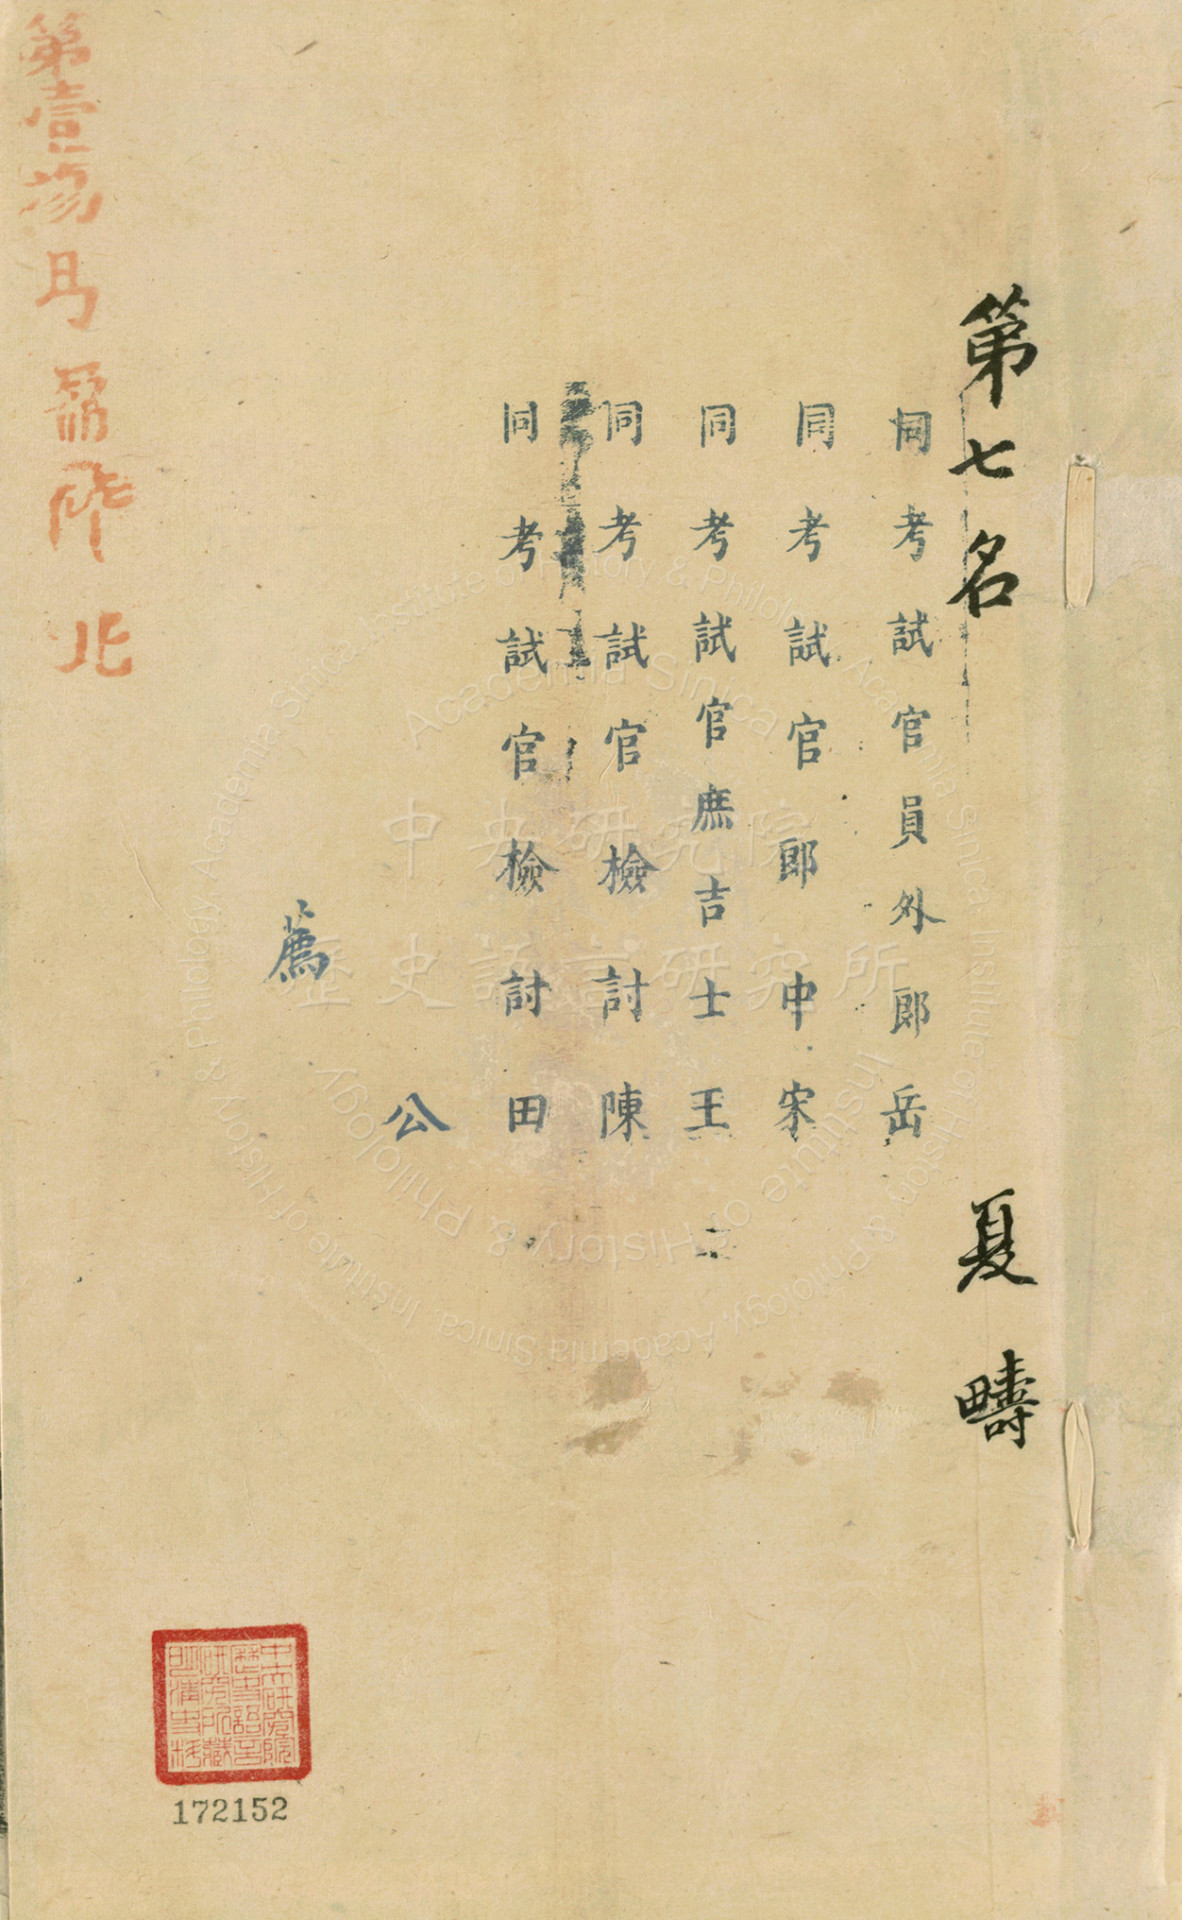 第七名 夏疇
同考試官員外郎岳
同考試官郎中宋
同考試官庶吉士王
同考試官檢討陳
同考試官檢討田
公
薦
第壹場
北
中央研究院
歷史語言研究所
Institute of History & Philology, Academia Sinica
中央研究院歷史語言研究所藏明清史料
172152